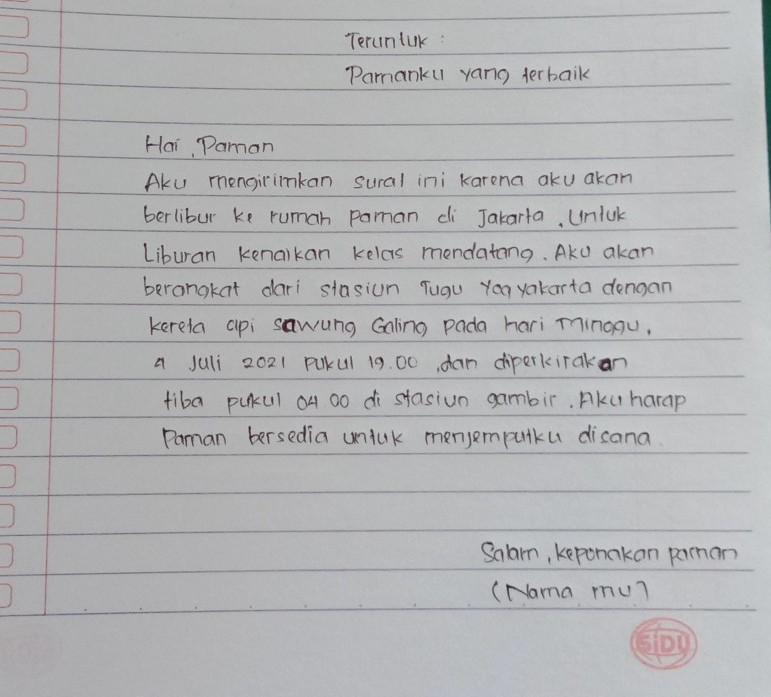 Teruntuk :
Pamanku yang terbaik
Hai, Paman
Aku mengirimkan surat ini karena aku akan
berlibur ke rumah paman di Jakarta, Untuk
Liburan kenaikan kelas mendatang. Aku akan
berangkat dari stasiun Tugu Yogyakarta dengan
kereta api sawung Galing pada hari Minggu,
4 Juli 2021 pukul 19.00, dan diperkirakan
tiba pukul 04 00 di stasiun gambir. Aku harap
Paman bersedia untuk menjemputku disana.
Salam, keponakan paman
(Nama mu)
SiDU